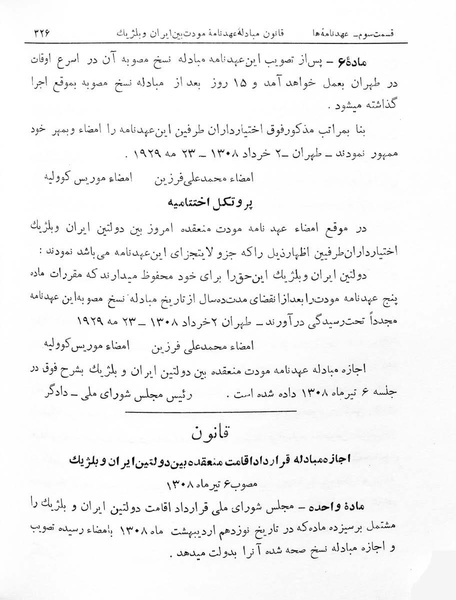 قسمت سوم ـ عهدنامه‌ها قانون مبادلهٔ عهدنامهٔ مودت بین ایران و بلژیك ۳۲۶
مادهٔ ۶ ـ پس از تصویب این عهدنامه مبادله نسخ مصوبه آن در اسرع اوقات
در طهران بعمل خواهد آمد و ۱۵ روز بعد از مبادله نسخ مصوبه بموقع اجرا
گذاشته میشود .
بنا بمراتب مذکور فوق اختیارداران طرفین این عهدنامه را امضاء و بمهر خود
ممهور نمودند ـ طهران ـ ۲ خرداد ۱۳۰۸ ـ ۲۳ مه ۱۹۲۹ .
امضاء محمدعلی فرزین امضاء موریس کوولیه
پروتکل اختتامیه
در موقع امضاء عهد نامه مودت منعقده امروز بین دولتین ایران و بلژیك
اختیارداران طرفین اظهار ذیل را که جزو لایتجزای این عهدنامه می‌باشد نمودند :
دولتین ایران و بلژیك این حق را برای خود محفوظ میدارند که مقررات ماده
پنج عهدنامه مودت را بعد از انقضای مدت ده سال از تاریخ مبادله نسخ مصوبه این عهدنامه
مجدداً تحت رسیدگی درآورند ـ طهران ۲ خرداد ۱۳۰۸ ـ ۲۳ مه ۱۹۲۹
امضاء محمدعلی فرزین امضاء موریس کوولیه
اجازه مبادله عهدنامه مودت منعقده بین دولتین ایران و بلژیك بشرح فوق در
جلسه ۶ تیر ماه ۱۳۰۸ داده شده است . رئیس مجلس شورای ملی ـ دادگر
قانون
اجازه مبادله قرارداد اقامت منعقده بین دولتین ایران و بلژیك
مصوب ۶ تیر ماه ۱۳۰۸
مادهٔ واحده ـ مجلس شورای ملی قرارداد اقامت دولتین ایران و بلژیك را
مشتمل بر سیزده ماده که در تاریخ نوزدهم اردیبهشت ماه ۱۳۰۸ بامضاء رسیده تصویب
و اجازه مبادله نسخ صحه شده آنرا بدولت میدهد .